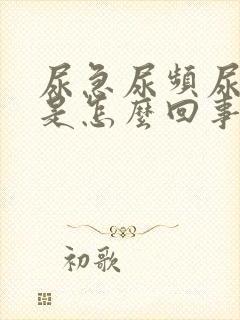 尿急尿頻尿
是怎麼回事
初歌